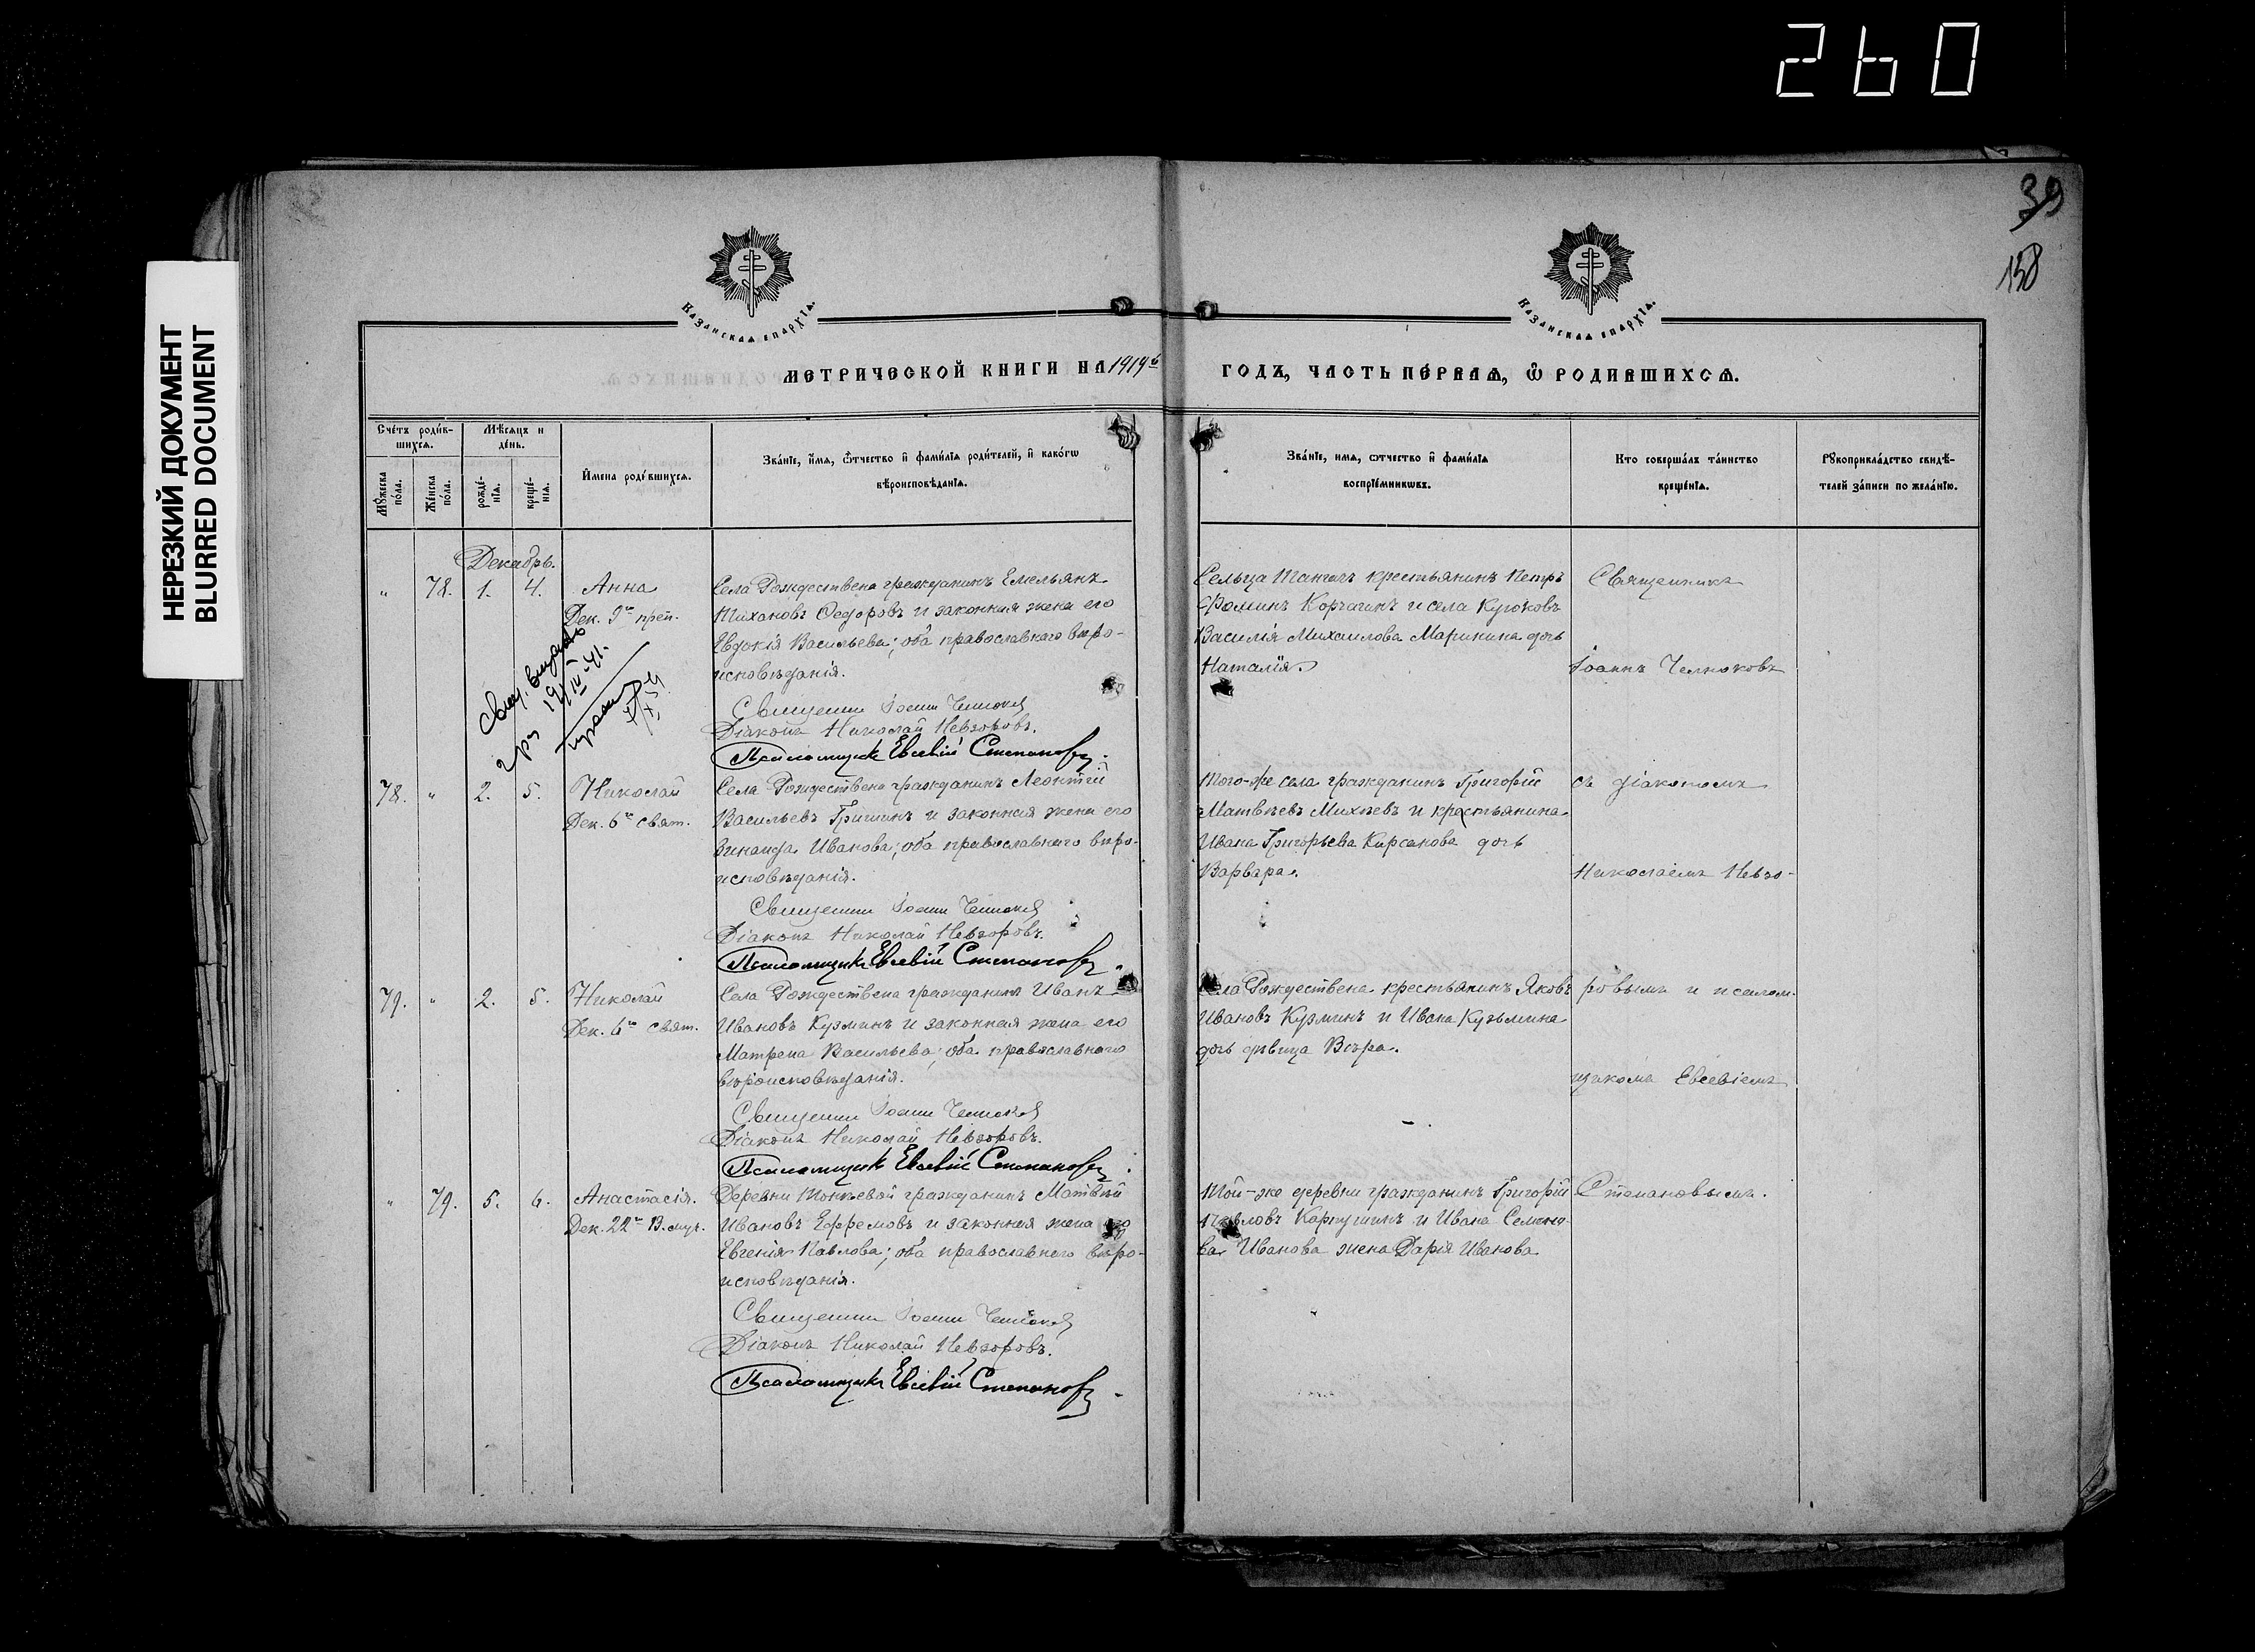 260
39
158
НЕРЕЗКИЙ ДОКУМЕНТ
BLURRED DOCUMENT
КАЗАНСКАѦ ЕПАРХІѦ.
КАЗАНСКАѦ ЕПАРХІѦ.
МЕТРИЧЕСКОЙ КНИГИ НА 1919й ГОДЪ, ЧАСТЬ ПЕ́РВАѦ, Ѽ РОДИВШИХСѦ.
Сче́тъ роди́в-
шихсѧ.
Мѣ́сѧцъ и
де́нь.
Мꙋ́жеска
по́ла.
Же́нска
по́ла.
рожде́-
нїѧ.
креще́-
нїѧ.
И́мена роди́вшихсѧ.
Зва́нїе, и́мѧ, ѻ҆́тчество и҆ фами́лїѧ роди́телей, и҆ како́гѡ
вѣроисповѣ́данїѧ.
Зва́нїе, имѧ, ѻтчество и҆ фами́лїѧ
воспрїе́мникѡвъ.
Кто соверша́лъ та́инство
креще́нїѧ.
Рꙋкоприкла́дство свидѣ́-
телей за́писи по жела́нїю.
Декабрь.
" 78. 1. 4. Анна
Дек. 9го преп.
Села Рождествена гражданинъ Емельянъ
Ѳедоровъ и законная жена его
Евдокія Васильева; оба православнаго вѣро-
исповѣданія.
Священникъ Іоаннъ Челноковъ
Діаконъ Николай Невзоровъ.
Псаломщикъ Евсевій Степановъ.
Сельца крестьянинъ Петръ
Ѳоминъ Корчагинъ и села
Василія Михаилова Маринина дочь
Наталія.
Священникъ
Іоаннъ Челноковъ
19/IV-41.
78. " 2. 5. Николай
Дек. 6го свят.
Села Рождествена гражданинъ Леонтій
Васильевъ Гришинъ и законная жена его
Иванова; оба православнаго вѣро-
исповѣданія.
Священникъ Іоаннъ Челноковъ
Діаконъ Николай Невзоровъ.
Псаломщикъ Евсевій Степановъ.
Того-же села гражданинъ Григорій
Матвѣевъ Михѣевъ и крестьянина
Ивана Григорьева Кирсанова дочь
Варвара.
съ діакономъ
Николаемъ Невзо-
79. " 2. 5. Николай
Дек. 6го свят.
Села Рождествена гражданинъ Иванъ
Ивановъ Кузминъ и законная жена его
Матрена Васильева; оба православнаго
вѣроисповѣданія.
Священникъ Іоаннъ Челноковъ
Діаконъ Николай Невзоровъ.
Псаломщикъ Евсевій Степановъ.
Села Рождествена крестьянинъ Яковъ
Ивановъ Кузминъ и Ивана Кузьмина
дочь дѣвица Вѣра.
ровымъ и псалом-
щикомъ Евсевіемъ
" 79. 5. 6. Анастасія.
Дек. 22го В. муч.
Деревни Монѣевой гражданинъ Матвѣй
Ивановъ Ефремовъ и законная жена его
Евгенія Павлова; оба православнаго вѣро-
исповѣданія.
Священникъ Іоаннъ Челноковъ
Діаконъ Николай Невзоровъ.
Псаломщикъ Евсевій Степановъ.
Той-же деревни гражданинъ Григорій
Павловъ Карпушинъ и Ивана Семено-
ва Иванова жена Дарія Иванова
Степановымъ.